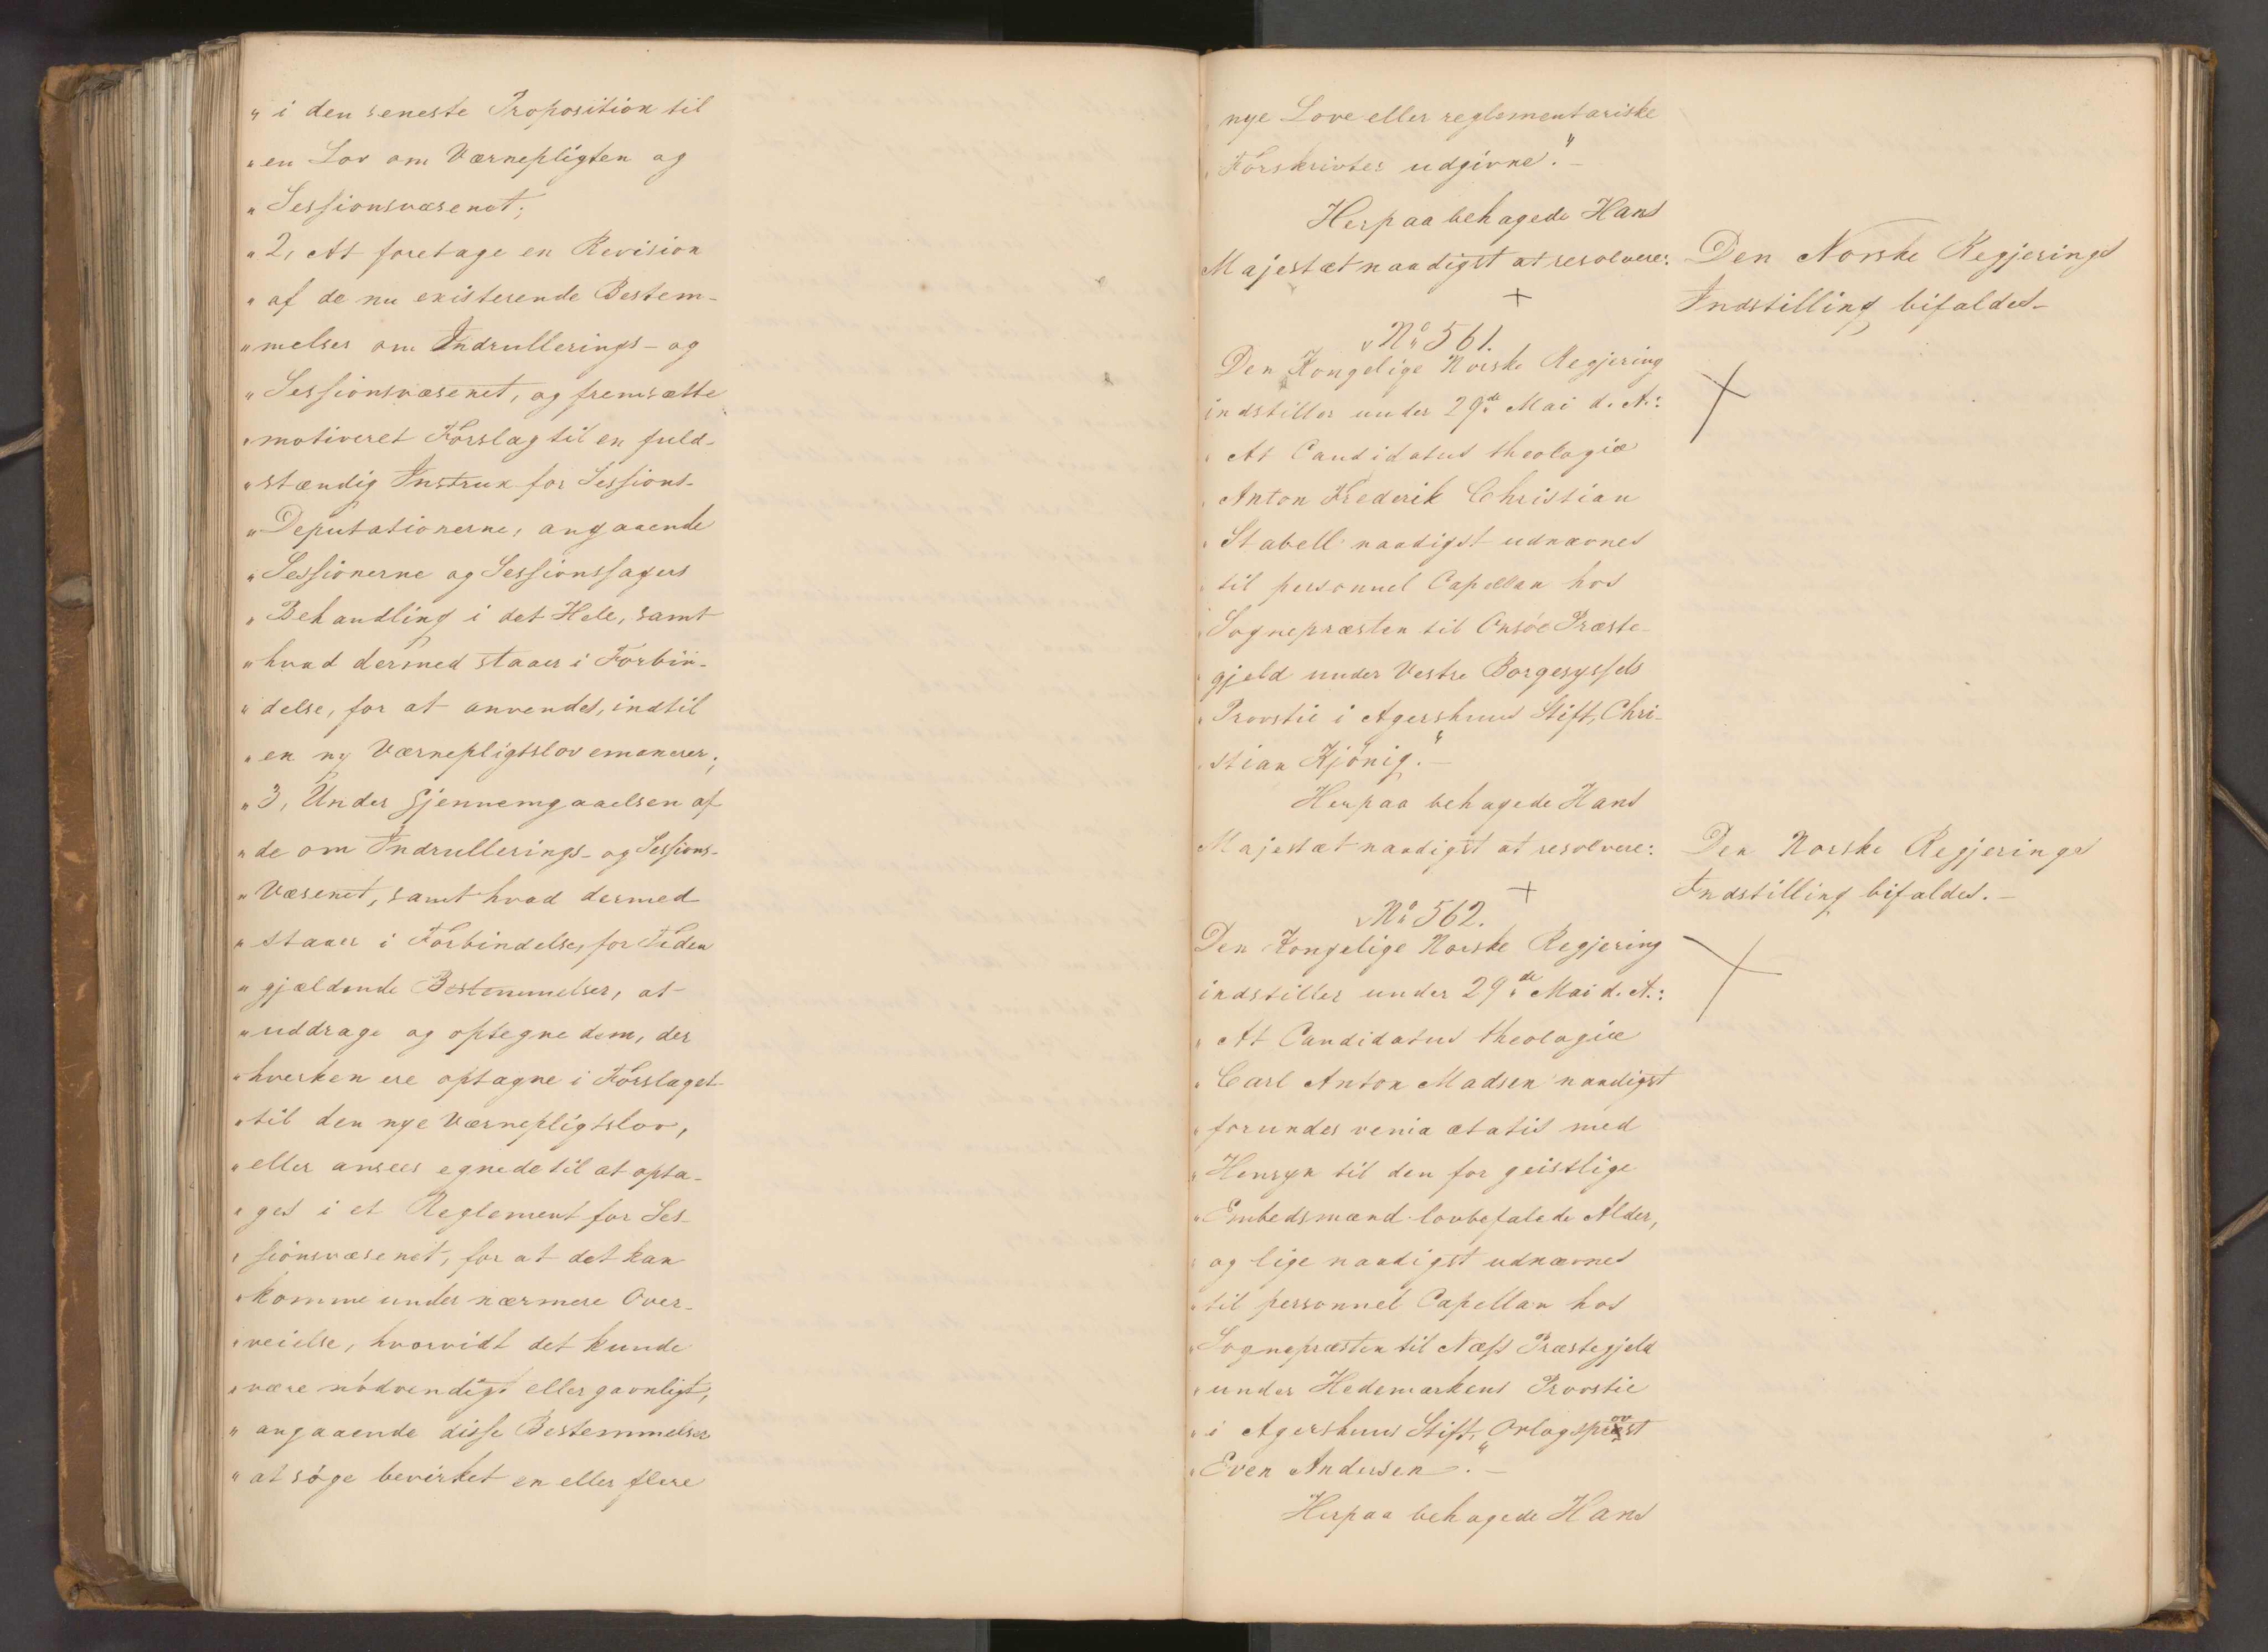 " i den seneste Proposition til
" en Lov om Værnepligten og
" Sessionsvæsenet;
" 2, At foretage en Revision
" af de nu existerende Bestem-
" melser om Indrullerings- og
" Sessionsvæsenet, og fremsætte
" motiveret Forslag til en fuld-
" stændig Instrux for Sessions-
" Deputationerne, angaaende
" Sessionerne og Sessionssagers
" Behandling i det Hele, samt
" hvad dermed staaer i Forbin-
" delse, for at anvendes, indtil
" en ny Værnepligtslov emanerer;
" 3, Under Gjennemgaaelsen af
" de om Indrullerings- og Sessions-
" Væsenet, samt hvad dermed
" staaer i Forbindelse, for Tiden
" gjældende Bestemmelser, at
" uddrage og optegne dem, der
" hverken ere optagne i Forslaget
" til den nye Værnepligtslov,
" eller ansees egnede til at opta-
" ges i et Reglement for Ses-
" sionsvæsenet, for at det kan
" komme under nærmere Over-
" veielse, hvorvidt det kunde
" være nödvendigt eller gavnligt,
" angaaende disse Bestemmelser
" at söge bevirket en eller flere
" nye Love eller reglementariske
" Forskrivter udgivne." -
Herpaa behagede Hans
Majestæt naadigst at resolvere:
Den Norske Regjerings
Indstilling bifaldes -
No 561.
Den Kongelige Norske Regjering
indstiller under 29de Mai d. A.:
" At Candidatus theologiæ
" Anton Frederik Christian
" Stabell naadigst udnævnes
" til personnel Capellan hos
" Sognepræsten til Onsöe Præste-
" gjeld under Vestre Borgesyssels
" Provstie i Agershuus Stift, Chri-
" stian Kjönig." -
Herpaa behagede Hans
Majestæt naadigst at resolvere:
Den Norske Regjerings
Indstilling bifaldes. -
No 562.
Den Kongelige Norske Regjering
indstiller under 29de Mai d. A.:
" At Candidatus theologiæ
" Carl Anton Madsen naadigst
" forundes venia ætatis med
" Hensyn til den for geistlige
" Embedsmænd lovbefalede Alder,
" og lige naadigst udnævnes
" til personnel Capellan hos
" Sognepræsten til Næss Præstegjeld
" under Hedemarkens Provstie
" i Agershuus Stift, Orlogsprovst
" Even Andersen." -
Herpaa behagede Hans